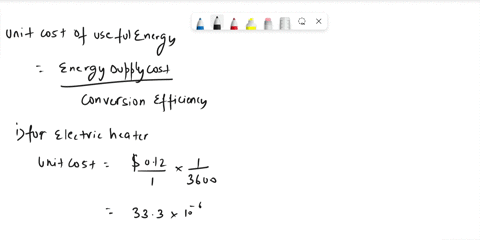 Unit cost of useful Energy
= Energy supply cost / Conversion Efficiency
i) for Electric heater
Unit cost = $ 0.12 / 1 × 1 / 3600
= 33.3 × 10⁻⁶